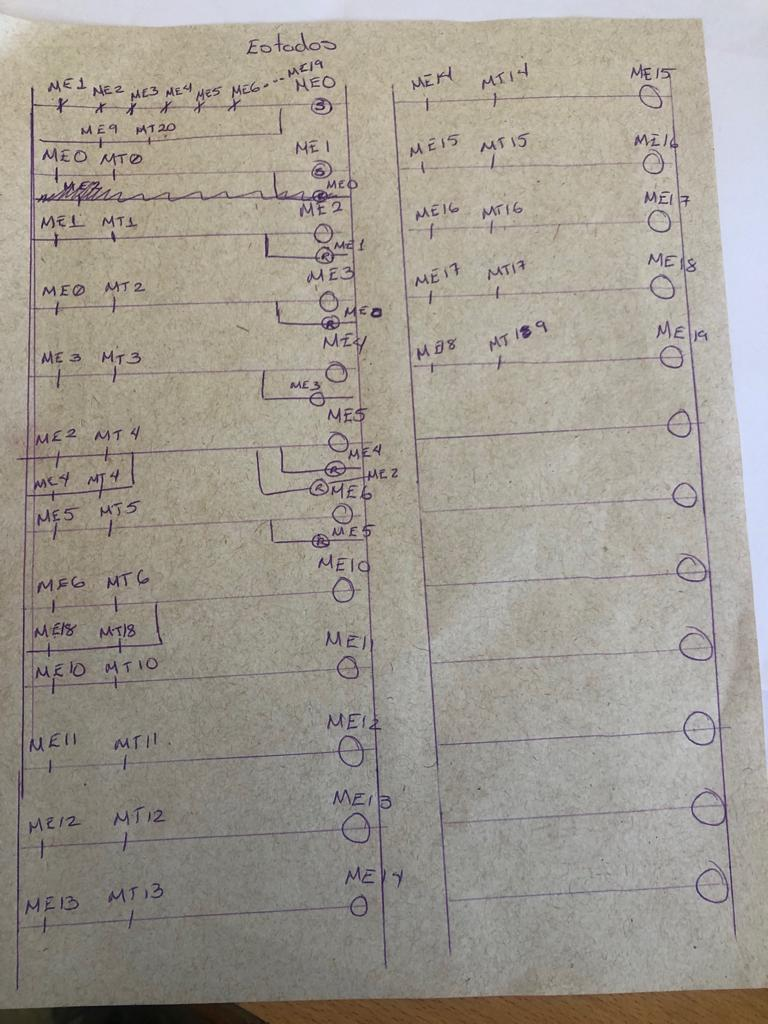 Estados
ME1 ME2 ME3 ME4 ME5 ME6 --- ME19
ME0
S
ME9 MT20
ME0 MT0 ME1
S
ME0
R
ME1 MT1 ME2
R ME1
ME0 MT2 ME3
R ME0
ME3 MT3 ME4
ME3
ME2 MT4 ME5
R ME4
ME4 MT4
R ME2
ME5 MT5 ME6
R ME5
ME6 MT6 ME10
ME18 MT18
ME10 MT10 ME11
ME11 MT11 ME12
ME12 MT12 ME13
ME13 MT13 ME14
ME14 MT14 ME15
ME15 MT15 ME16
ME16 MT16 ME17
ME17 MT17 ME18
ME18 ME19